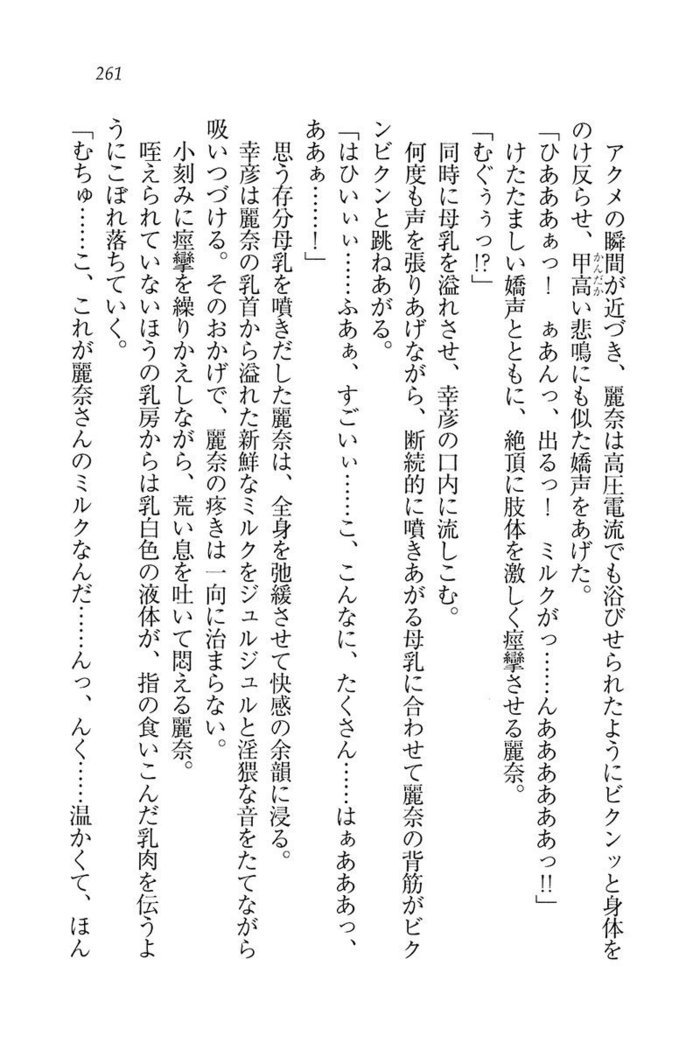 261
アクメの瞬間が近づき、麗奈は高圧電流でも浴びせられたようにビクンッと身体を
のけ反らせ、甲高い悲鳴にも似た嬌声をあげた。
かんだか
「ひあああぁっ！　ぁあんっ、出るっ！　ミルクがっ……んああああああっ!!」
けたたましい嬌声とともに、絶頂に肢体を激しく痙攣させる麗奈。
「むぐぅぅっ!?」
同時に母乳を溢れさせ、幸彦の口内に流しこむ。
何度も声を張りあげながら、断続的に噴きあがる母乳に合わせて麗奈の背筋がビク
ンビクンと跳ねあがる。
「はひいぃぃ……ふあぁ、すごいぃ……こ、こんなに、たくさん……はぁあああっ、
ああぁ……！」
思う存分母乳を噴きだした麗奈は、全身を弛緩させて快感の余韻に浸る。
幸彦は麗奈の乳首から溢れた新鮮なミルクをジュルジュルと淫猥な音をたてながら
吸いつづける。そのおかげで、麗奈の疼きは一向に治まらない。
小刻みに痙攣を繰りかえしながら、荒い息を吐いて悶える麗奈。
咥えられていないほうの乳房からは乳白色の液体が、指の食いこんだ乳肉を伝うよ
うにこぼれ落ちていく。
「むちゅ……こ、これが麗奈さんのミルクなんだ……んっ、んく……温かくて、ほん